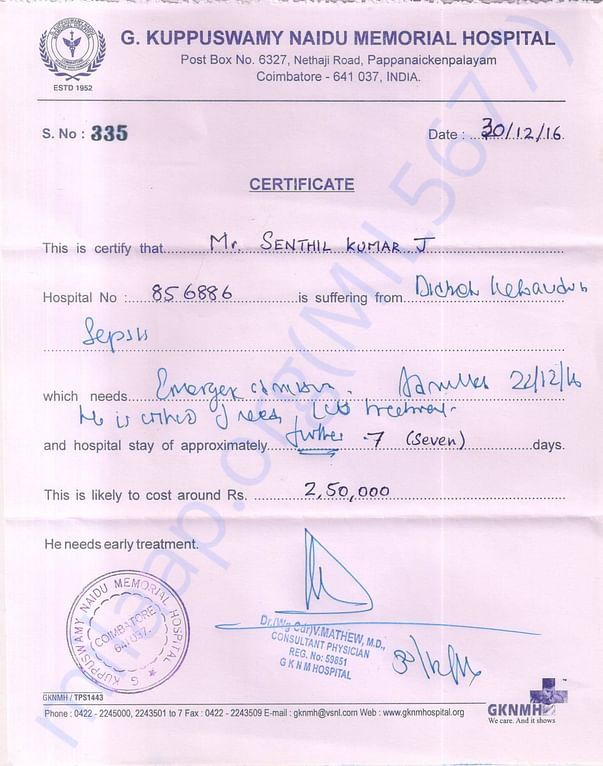 G. KUPPUSWAMY NAIDU MEMORIAL HOSPITAL
ESTD 1952
Post Box No. 6327, Nethaji Road, Pappanaickenpalayam
Coimbatore - 641 037, INDIA.
S. No : 335 Date : 30/12/16.
CERTIFICATE
This is certify that Mr. SENTHIL KUMAR J
Hospital No : 856886 is suffering from
Sepsis
which needs 22/12/16
He is needs treatment.
and hospital stay of approximately further 7 (Seven) days.
This is likely to cost around Rs. 2,50,000
He needs early treatment.
G KUPPUSWAMY NAIDU MEMORIAL HOSPITAL
COIMBATORE
641 037.
Dr.(Wg Cdr)V.MATHEW, M.D.,
CONSULTANT PHYSICIAN
REG. No: 59651
G K N M HOSPITAL
30/12/16
GKNMH / TPS1443
Phone : 0422 - 2245000, 2243501 to 7 Fax : 0422 - 2243509 E-mail : gknmh@vsnl.com Web : www.gknmhospital.org
GKNMH
We care. And it shows